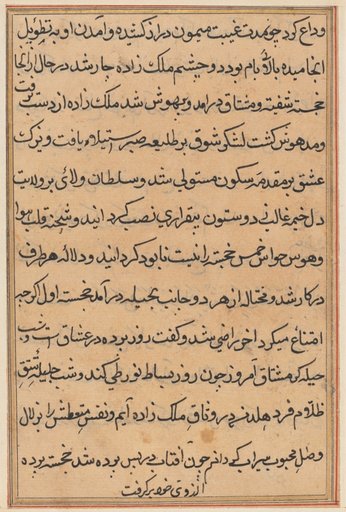 وداع کرد چو مدت غیبت میمون دراز کشیده و آمدن او به تطویل
انجامیده بالای بام بود دو چشم ملک زاده چار شد در حال از آنجا
خجسته شیفته و مشتاق درآمد و بیهوش شد ملک زاده از دست رفت
و مدهوش گشت لشکر شوق بر طلیعه صبر استیلا یافت و ترک
عشق بر مقدمه سکون مستولی شد و سلطان والای بر ولایت
دل خیمه دو ستون بیقراری نصب گردانید و شحنه قلب هوا
و هوس حواس خمس خجسته را نیست نابود گردانید و دلاله هر طرف
در کار شد و محتاله از هر دو جانب بحیله درآمد خجسته اول اگرچه
امتناع میکرد آخر راضی شد و گفت روز پرده در عشاق است و شب
حیله گر مشتاق امروز چون روز بساط نور طی کند و شب حلیه
ظلام فرو هلد من در وثاق ملک زاده آیم و نفس متعطش را بزلال
وصل محبوب سیراب گردانم چون آفتاب در پس پرده شد خجسته پرده
از روی خود برگرفت